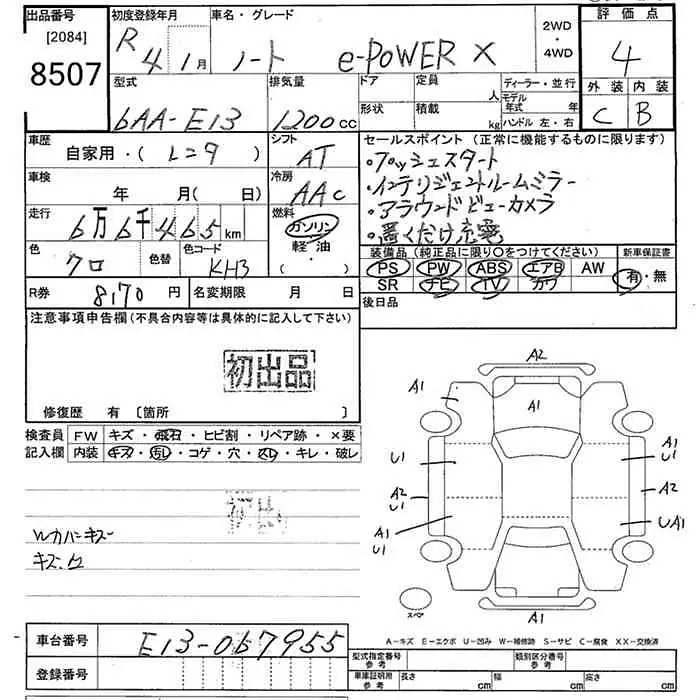 出品番号 初度登録年月 車名・グレード 2WD・4WD 評価点
[2084] R 4 1月 ノート e-POWER X 4
8507
型式 排気量 ドア 定員 人 ディーラー・並行 外装 内装
6AA-E13 1200cc 形状 積載 kg モデル年式 年 ハンドル 左・右 C B
車歴 シフト セールスポイント (正常に機能するものに限ります)
自家用・( レンタ ) AT ・プッシュスタート
車検 冷房 ・インテリジェントルームミラー
年 月(日) AAC ・アラウンドビューカメラ
走行 燃料 ・置くだけ充電
6万6千465km ガソリン 軽油・( )
色 色替 色コード 装備品 (純正品に限り○をつけてください) 新車保証書
クロ KH3 PS PW ABS エアB AW 有・無
SR ナビ TV カワ
R券 8,170円 名変期限 月 日 後日品
注意事項申告欄(不具合内容等は具体的に記入して下さい)
初出品
修復歴 有 [箇所 ]
検査員 FW キズ・飛石・ヒビ割・リペア跡・×要
記入欄 内装 キズ・汚レ・コゲ・穴・スレ・キレ・破レ
A2
A1 A1
U1 A1 U1
A2 U1 A2
A1 U1 UA1
Wカバーキズ
スペア
A1
A-キズ E-エクボ U-凹み W-補修跡 S-サビ C-腐食 XX-交換済
車台番号 E13-067955
登録番号
型式指定番号 参考 類別区分番号 参考
車庫証明用 参考 長さ cm 幅 cm 高さ cm